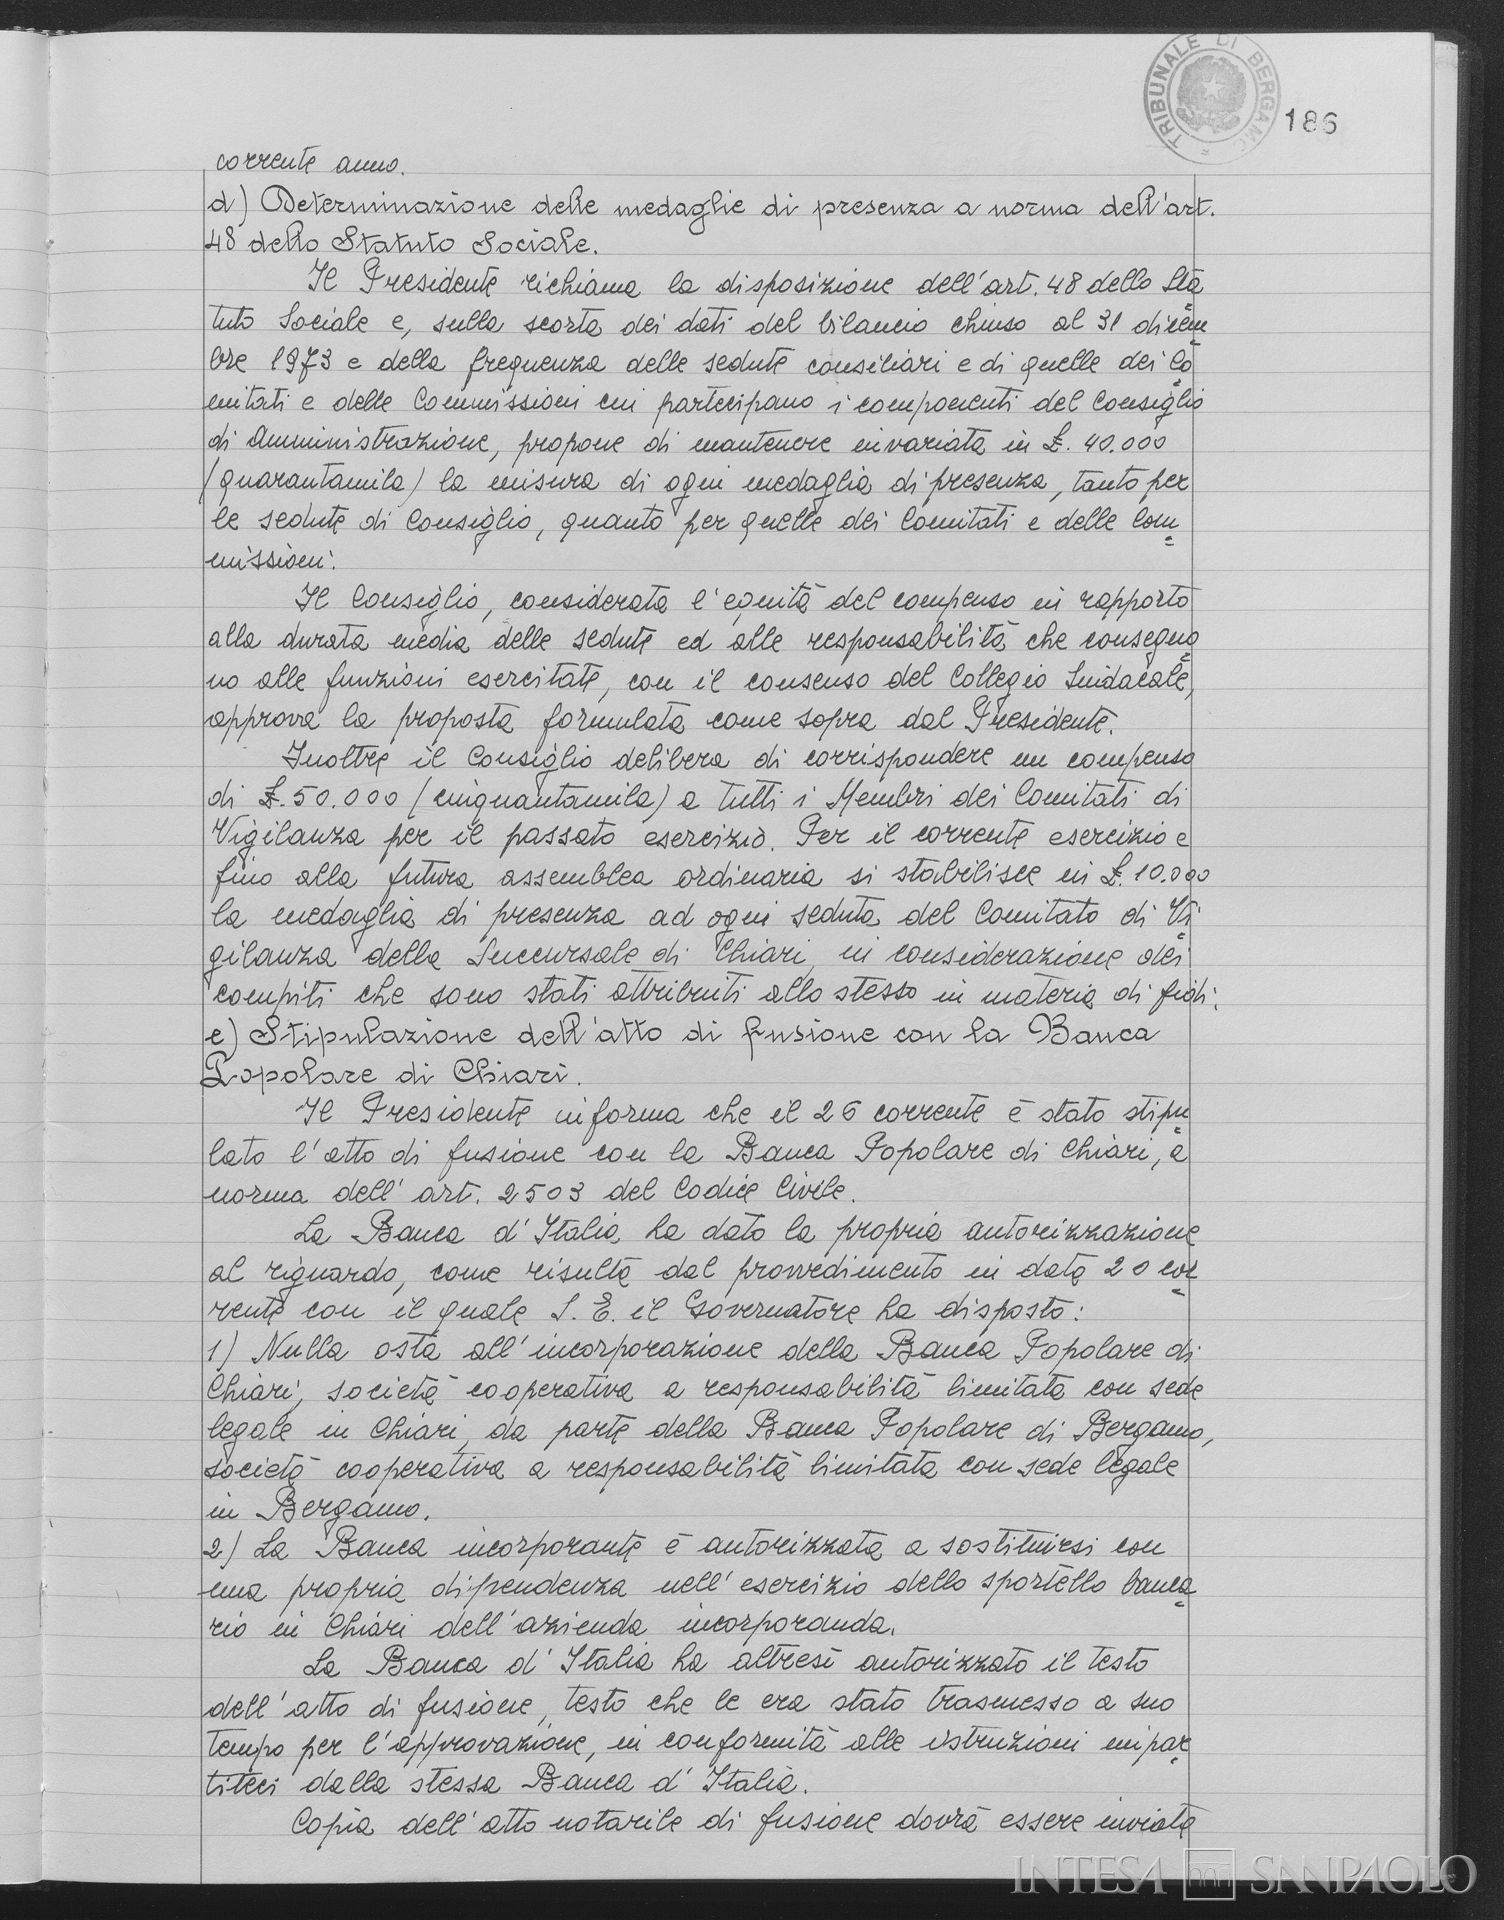 TRIBUNALE DI BERGAMO
186
corrente anno.
d) Determinazione delle medaglie di presenza a norma dell'art.
48 dello Statuto Sociale.
Il Presidente richiama la disposizione dell'art. 48 dello Sta=
tuto Sociale e, sulla scorta dei dati del bilancio chiuso al 31 dicem=
bre 1973 e della frequenza delle sedute consiliari e di quelle dei Co=
mitati e delle Commissioni cui partecipano i componenti del Consiglio
di Amministrazione, propone di mantenere invariata in £. 40.000
(quarantamila) la misura di ogni medaglia di presenza, tanto per
le sedute di Consiglio, quanto per quelle dei Comitati e delle Com=
missioni.
Il Consiglio, considerata l'equità del compenso in rapporto
alla durata media delle sedute ed alle responsabilità che conseguo=
no alle funzioni esercitate, con il consenso del Collegio Sindacale,
approva la proposta formulata come sopra dal Presidente.
Inoltre il Consiglio delibera di corrispondere un compenso
di £. 50.000 (cinquantamila) a tutti i Membri dei Comitati di
Vigilanza per il passato esercizio. Per il corrente esercizio e
fino alla futura assemblea ordinaria si stabilisce in £. 10.000
la medaglia di presenza ad ogni seduta del Comitato di Vi=
gilanza della Succursale di Chiari, in considerazione dei
compiti che sono stati attribuiti allo stesso in materia di fidi.
e) Stipulazione dell'atto di fusione con la Banca
Popolare di Chiari.
Il Presidente informa che il 26 corrente è stato stipu=
lato l'atto di fusione con la Banca Popolare di Chiari, a
norma dell'art. 2503 del Codice Civile.
La Banca d'Italia ha dato la propria autorizzazione
al riguardo, come risulta dal provvedimento in data 20 cor=
rente con il quale S. E. il Governatore ha disposto:
1) Nulla osta all'incorporazione della Banca Popolare di
Chiari, società cooperativa a responsabilità limitata con sede
legale in Chiari, da parte della Banca Popolare di Bergamo,
società cooperativa a responsabilità limitata con sede legale
in Bergamo.
2) La Banca incorporante è autorizzata a sostituirsi con
una propria dipendenza nell'esercizio dello sportello banca=
rio in Chiari dell'azienda incorporanda.
La Banca d'Italia ha altresì autorizzato il testo
dell'atto di fusione, testo che le era stato trasmesso a suo
tempo per l'approvazione, in conformità alle istruzioni impar=
titeci dalla stessa Banca d'Italia.
Copia dell'atto notarile di fusione dovrà essere inviata
INTESA SANPAOLO